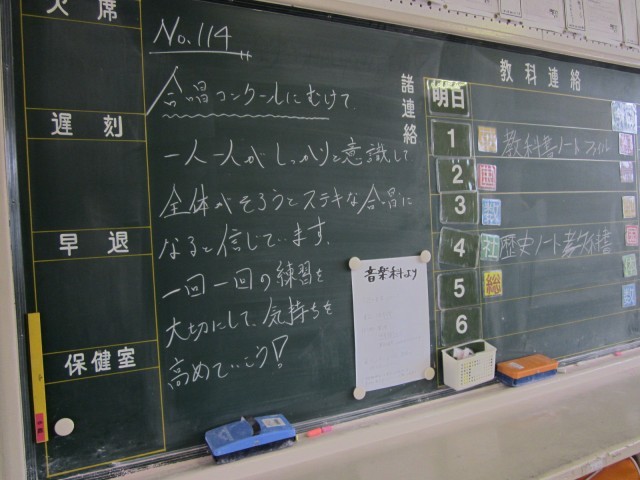 欠席
遅刻
早退
保健室
No.114
合唱コンクールにむけて
一人一人がしっかりと意識して
全体がそろうとステキな合唱に
なると信じています。
一回一回の練習を
大切にして、気持ちを
高めていこう!
音楽科より
諸連絡
教科連絡
明日
1 教科書ノートファイル
2 国
3 数
4 社 歴史ノート教科書
5 総
6